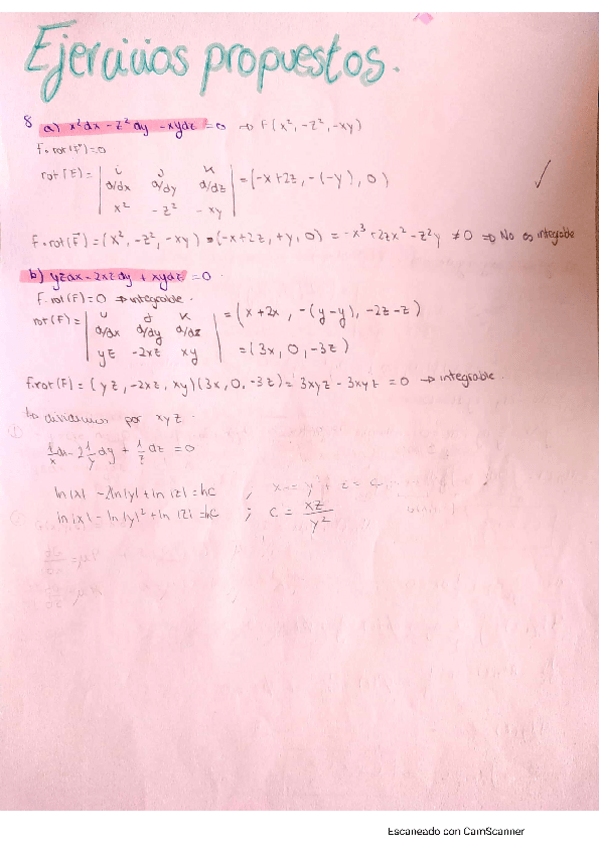 Ejercicios propuestos.
8 a) x²dx - z²dy - xydz = 0 → F(x², -z², -xy)
F · rot(F) = 0
rot(F) = | i j k | = (-x+2z, -(-y), 0)
d/dx d/dy d/dz
x² -z² -xy
F · rot(F) = (x², -z², -xy) · (-x+2z, +y, 0) = -x³ + 2zx² - z²y ≠ 0 ⇒ No es integrable
b) yzdx - 2xzdy + xydz = 0.
F. rot(F) = 0 → integrable.
rot(F) = | i j k | = (x+2x, -(y-y), -2z-z)
d/dx d/dy d/dz
yz -2xz xy = (3x, 0, -3z)
F·rot(F) = (yz, -2xz, xy)(3x, 0, -3z) = 3xyz - 3xyz = 0 → integrable.
dividimos por xyz.
1/x dx - 2 1/y dy + 1/z dz = 0
ln|x| - 2ln|y| + ln|z| = lnC ;
ln|x| - ln|y|² + ln|z| = lnC ; C = xz/y²
Escaneado con CamScanner